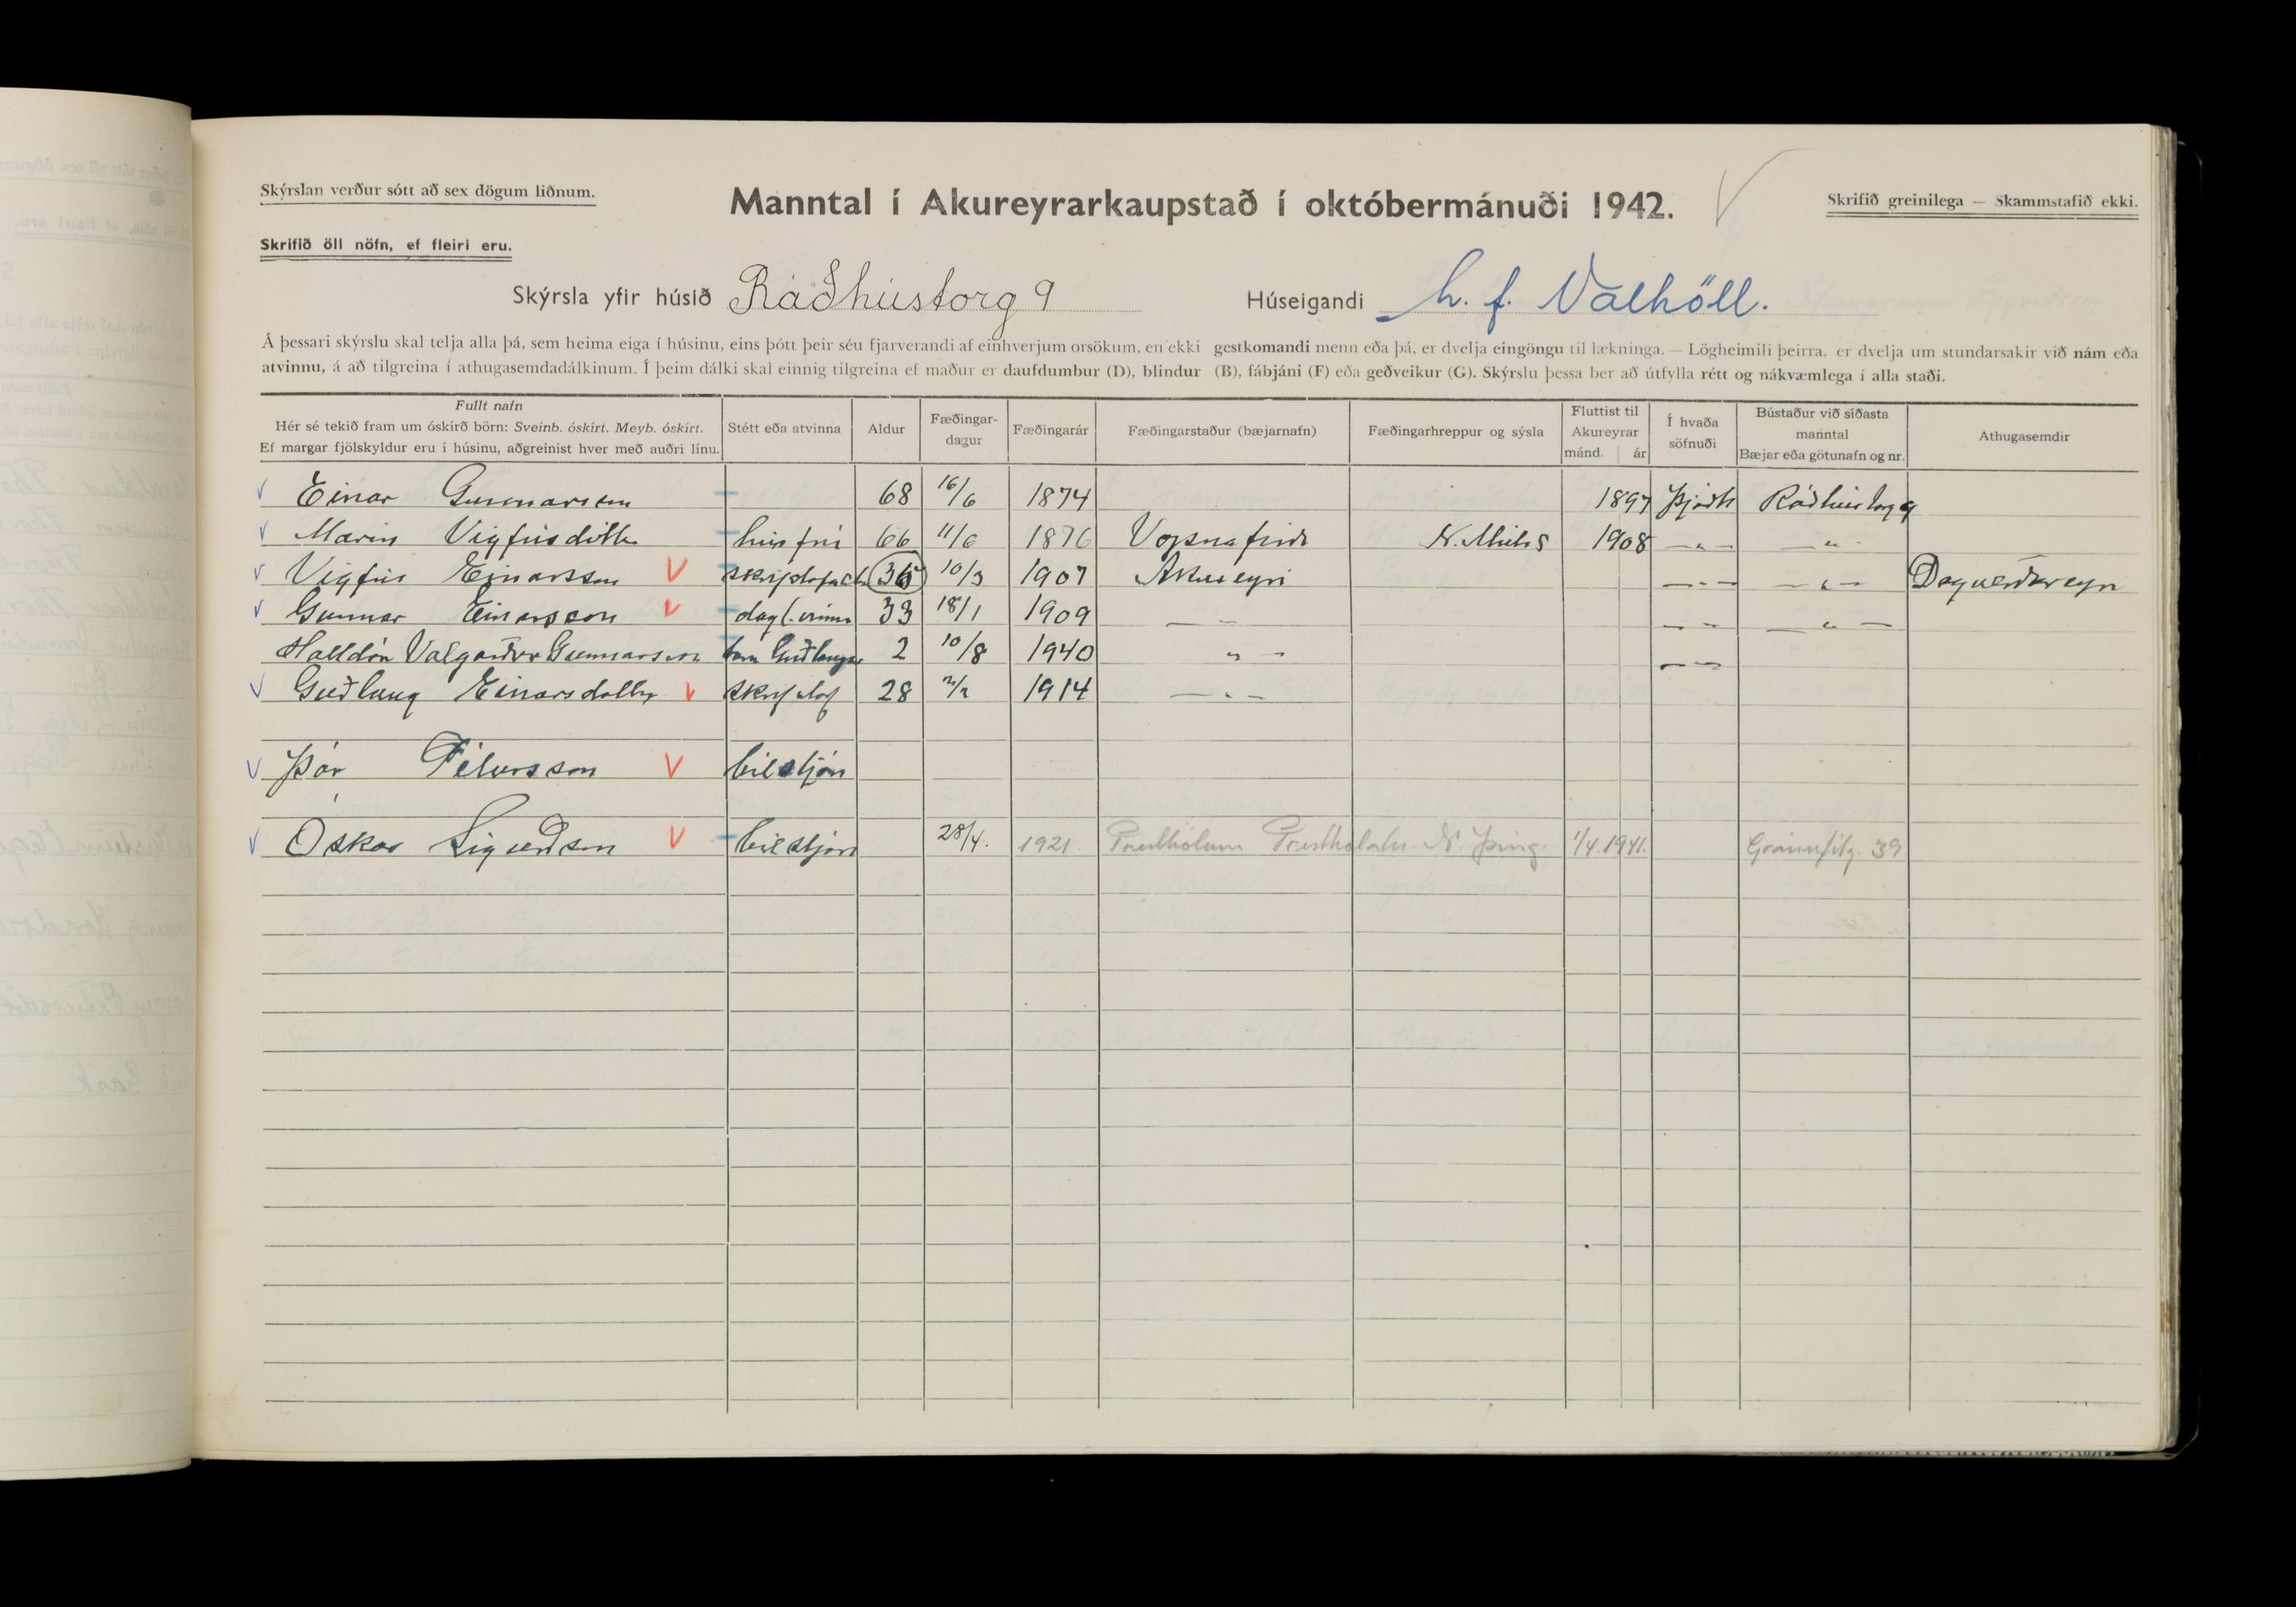 Skýrslan verður sótt að sex dögum liðnum.
Manntal í Akureyrarkaupstað í októbermánuði 1942.
Skrifið greinilega — Skammstafið ekki.
Skrifið öll nöfn, ef fleiri eru.
Skýrsla yfir húsið Ráðhústorg 9 Húseigandi h. f. Valhöll.
Á þessari skýrslu skal telja alla þá, sem heima eiga í húsinu, eins þótt þeir séu fjarverandi af einhverjum orsökum, en ekki gestkomandi menn eða þá, er dvelja eingöngu til lækninga. — Lögheimili þeirra, er dvelja um stundarsakir við nám eða
atvinnu, á að tilgreina í athugasemdadálkinum. Í þeim dálki skal einnig tilgreina ef maður er daufdumbur (D), blindur (B), fábjáni (F) eða geðveikur (G). Skýrslu þessa ber að útfylla rétt og nákvæmlega í alla staði.
Fullt nafn
Hér sé tekið fram um óskírð börn: Sveinb. óskírt. Meyb. óskírt.
Ef margar fjölskyldur eru í húsinu, aðgreinist hver með auðri línu.
Stétt eða atvinna
Aldur
Fæðingar-
dagur
Fæðingarár
Fæðingarstaður (bæjarnafn)
Fæðingarhreppur og sýsla
Fluttist til
Akureyrar
mánd. ár
Í hvaða
söfnuði
Bústaður við síðasta
manntal
Bæjar eða götunafn og nr.
Athugasemdir
Einar Gunnarsson 68 16/6 1874 1897 Þjóðk Ráðhústorg 9
Marin Vigfúsdóttir húsfrú 66 11/6 1876 Vopnafirði N. Múlas 1908 — " — — " —
Vigfús Einarsson 35 10/3 1907 Akureyri — " — — " — Dagverðareyri
Gunnar Einarsson dagl.vinna 33 18/1 1909 — " — — " — — " —
Halldór Valgarður Gunnarsson barn Guðlaugar 2 10/8 1940 — " — — " —
Guðlaug Einarsdóttir 28 1914 — " —
Þór Pétursson bílstjóri
Óskar Sigurðson bílstjóri 28/4. 1921. N. Þing. 1/4 1941. 39